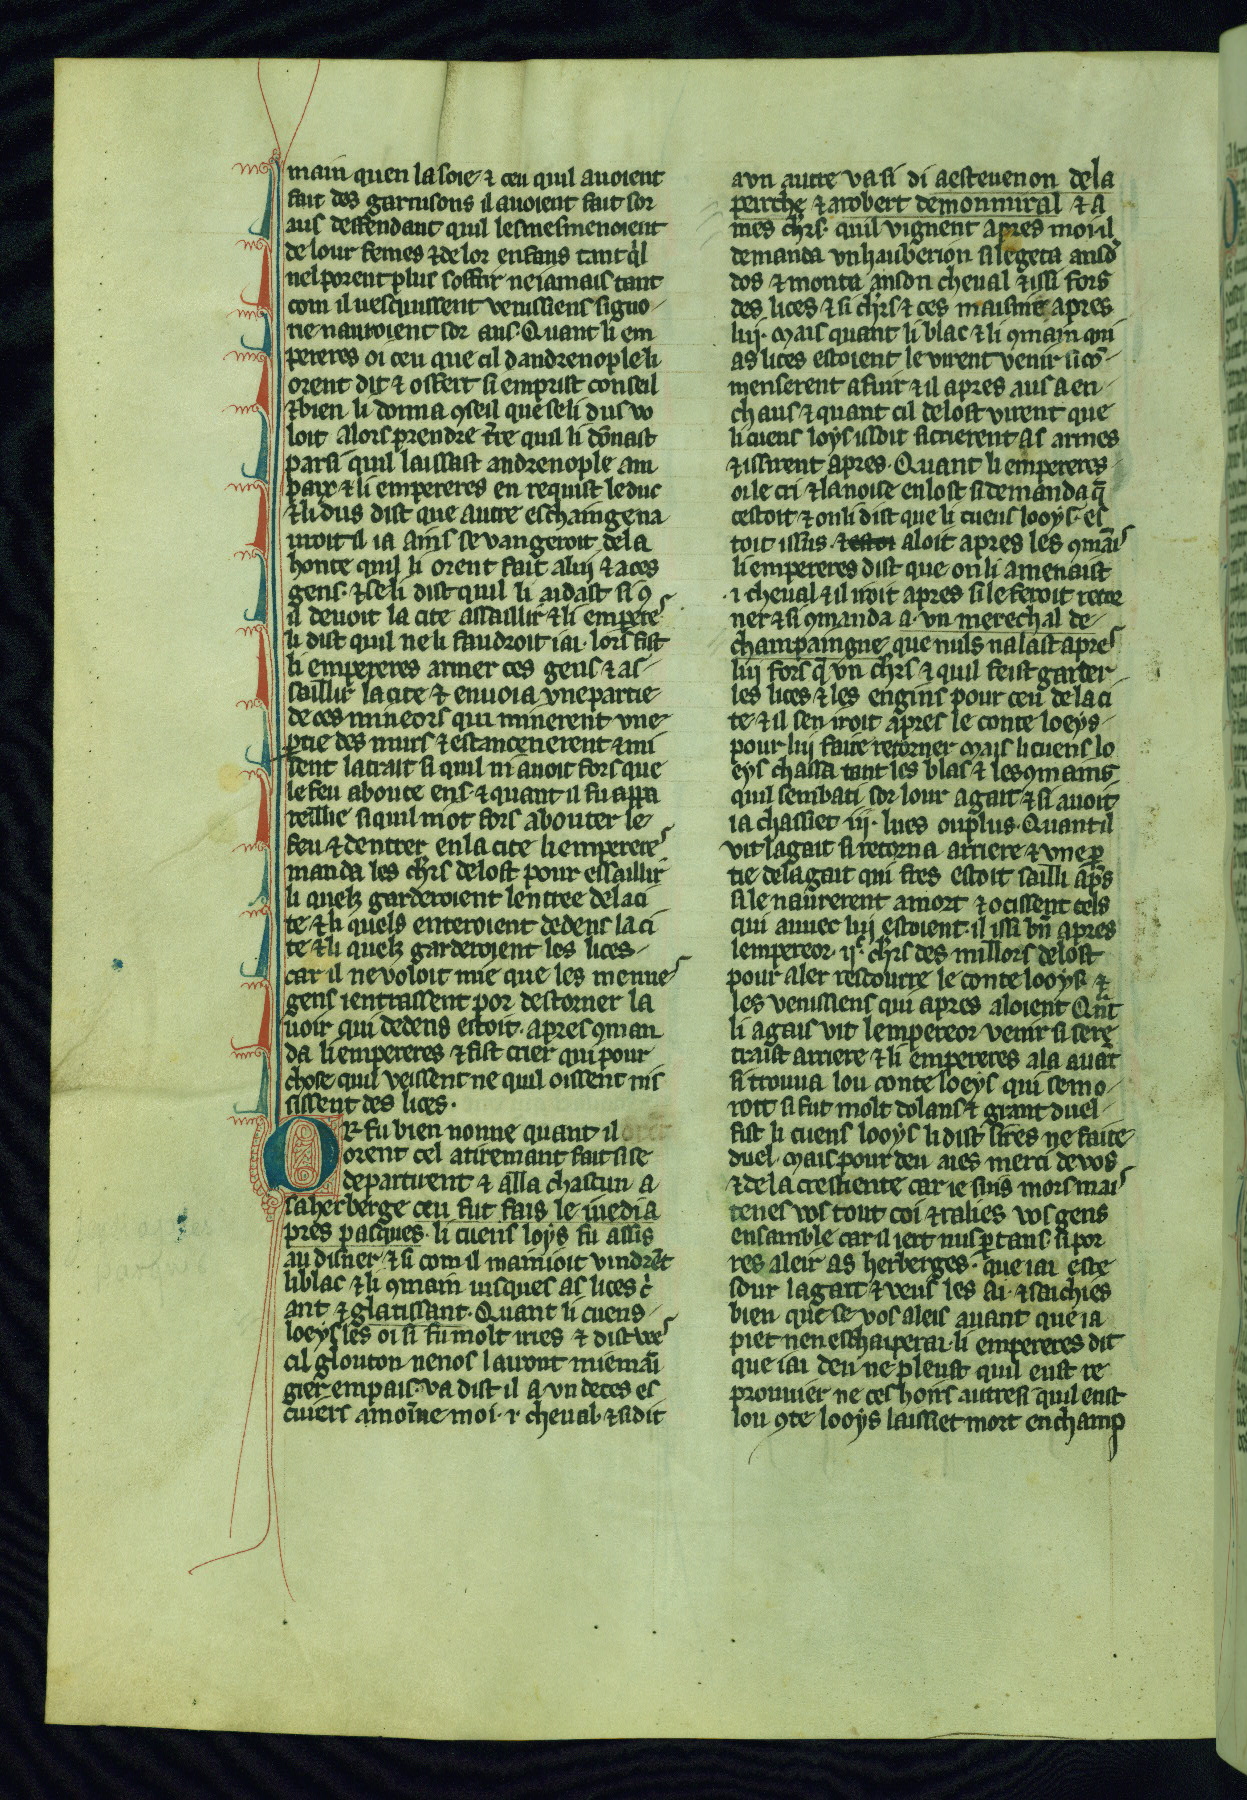 main quen la soie ⁊ ceu quil auoient
fait des garnisons il auoient fait sor
aus deffendant quil lesmesmenoient
de lour femes ⁊ de lor enfans tant ql̃
nel porent plus soffrir ne iamais tant
com il uesquissent venissiens signo
ne nauroient sor aus. Quant li em
pereres oi ceu que cil dandrenople li
orent dit ⁊ offert si emprist conseil
⁊ bien li donna ꝯseil que se li dus vo
loit alors prendre t̃re quil li dõnast
parsi quil laissast andrenople am
paix ⁊ li empereres en requist le duc
⁊ li dus dist que autre eschainge na
uroit il ia ains se vangeroit de la
honte quil li orent fait a luj ⁊ a ces
gens. ⁊ se li dist quil li aidast si ꝯ
il deuoit la cite assaillir ⁊ li empere
li dist quil ne li faudroit iai. lors fist
li empereres armer ces gens ⁊ as
saillir la cite ⁊ enuoia vne partie
de ces mineors qui minerent vne
ꝑtie des murs ⁊ estancenerent ⁊ mi
sent latrait si quil ni auoit fors que
le feu aboute ens. ⁊ quant il fu appa
reillie si quil niot fors abouter le
feu ⁊ dentrer en la cite li emperere
manda les chr̃s de lost pour essaillir
li quelz garderoient lentree de la ci
te ⁊ li quels enteroient dedens la ci
te ⁊ li quelz garderoient les lices
car il ne voloit mie que les menue
gens ientrassent por destorner la
uoir qui dedens estoit. apres ꝯman
da li empereres ⁊ fist crier qui pour
chose quil veissent ne quil oissent nis
sissent des lices.
OR fu bien nonne quant il
orent cel atiremant fait si se
departirent ⁊ alla chascun a
sa herberge ceu fut fais le iuedi a
pres pasques. li cuens loys fu assis
au disner ⁊ si com il mainioit vindrẽt
li blac ⁊ li ꝯmain iusques as lices c̃
ant ⁊ glatissant. Quant li cuens
loeys les oi si fu molt iries ⁊ dist
cil glouton ne nos lairont mie mãi
gier em pais. va dist il a vn de ces es
cuiers amoĩne moi .i. cheual. ⁊ si dit
a vn autre va si di a esteuenon de la
perche ⁊ a robert de monmiral ⁊ a
mes chr̃s. quil vignent apres moi il
demanda vn hauberion si le geta an sõ
dos ⁊ monta an son cheual ⁊ issi fors
des lices ⁊ si chr̃s ⁊ ces maisme apres
luj. mais quant li blac ⁊ li ꝯmain qui
as lices estoient le virent venir si cõ
menserent a fuir ⁊ il apres aus a en
chaus ⁊ quant cil de lost virent que
li cuens loys issoit si crierent as armes
⁊ issirent apres. Quant li empereres
oi le cri ⁊ la noise en lost si demanda q̃
cestoit ⁊ on li dist que li cuens looys es
toit issus. aloit apres les ꝯmãi
li empereres dist que on li amenaist
.i. cheual ⁊ il iroit apres si le feroit retor
ner ⁊ si ꝯmanda a .vn merechal de
champaingne que nuls nalast apre
luj fors q̃ vn chr̃s ⁊ quil feist garder
les lices ⁊ les engins pour ceu de la ci
te ⁊ il sen iroit apres le conte loeys
pour luj faire retorner mais li cuens lo
eys chassa tant les blas ⁊ les ꝯmains
quil sembati sor lour agait ⁊ si auoit
ia chassiet .iij. lues ou plus. Quant il
vit lagait si retorna arriere ⁊ vne ꝑ
tie de lagait qui fres estoit sailli apr̃s
si le naurerent a mort ⁊ ocissent cels
qui auuec luj estoient. il issi bñ apres
lempereor. ijc. chr̃s des millors de lost
pour aler rescourre le conte looys. ⁊
les venissiens qui apres aloient Qñt
li agais vit lempereor venir si sere
traist arriere ⁊ li empereres ala auãt
si trouua lou conte loeys qui se mo
roit si fut molt dolans ⁊ grant duel
fist li cuens looys li dist sires ne faite
duel. mais pour deu aies merci de vos
⁊ de la crestiente car ie suis mors mai
tenes vos tout coi ⁊ ralies vos gens
ensamble car il iert nus ꝑ tans si por
res aleir as herberges. que iai este
sour lagait ⁊ veus les ai. ⁊ saichies
bien que se vos aleis auant que ia
piet nen eschaiperai. li empereres dit
que iai deu ne pleust quil eust re
prouuier ne ces hoirs autresi quil eust
lou ꝯte looys laissiet mort en champ